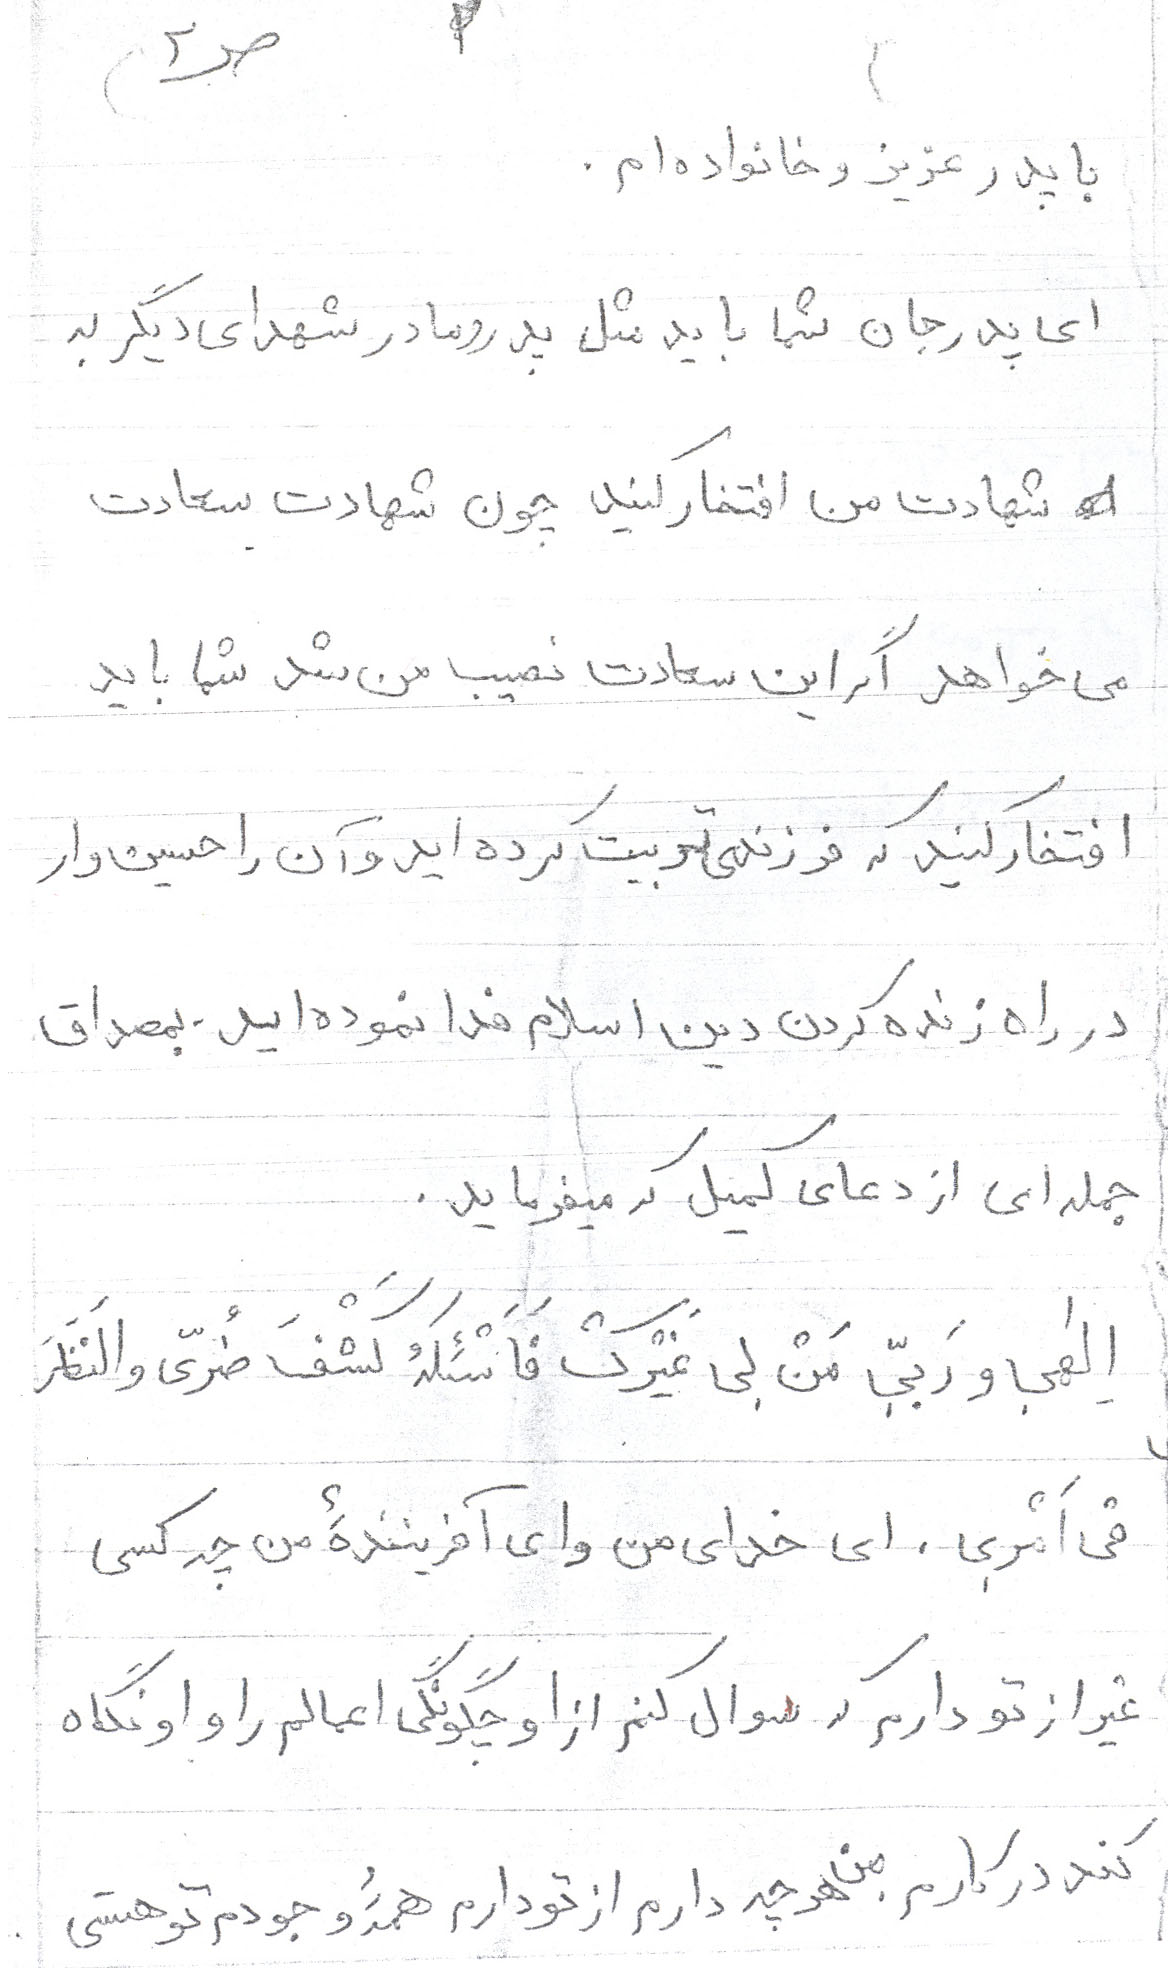 ص ۲
با پدر عزیز و خانواده ام .
ای پدر جان شما باید مثل پدر و مادر شهدای دیگر به
شهادت من افتخار کنید چون شهادت سعادت
می خواهد اگر این سعادت نصیب من شد شما باید
افتخار کنید که فرزندی تربیت کرده اید و آن را حسین وار
در راه زنده کردن دین اسلام فدا نموده اید . بمصداق
جمله ای از دعای کمیل که میفرماید .
اِلهی و رَبّی مَنْ لی غَیْرکْ فَاَسْئَلَهُ کَشْفَ ضُرّی و النَظَرَ
فی اَمْری ، ای خدای من و ای آفرینندهٔ من چه کسی
غیر از تو دارم که سوال کنم از او چگونگی اعمالم را و او نگاه
کند در کارم . من هر چه دارم از تو دارم همهٔ وجودم تو هستی .